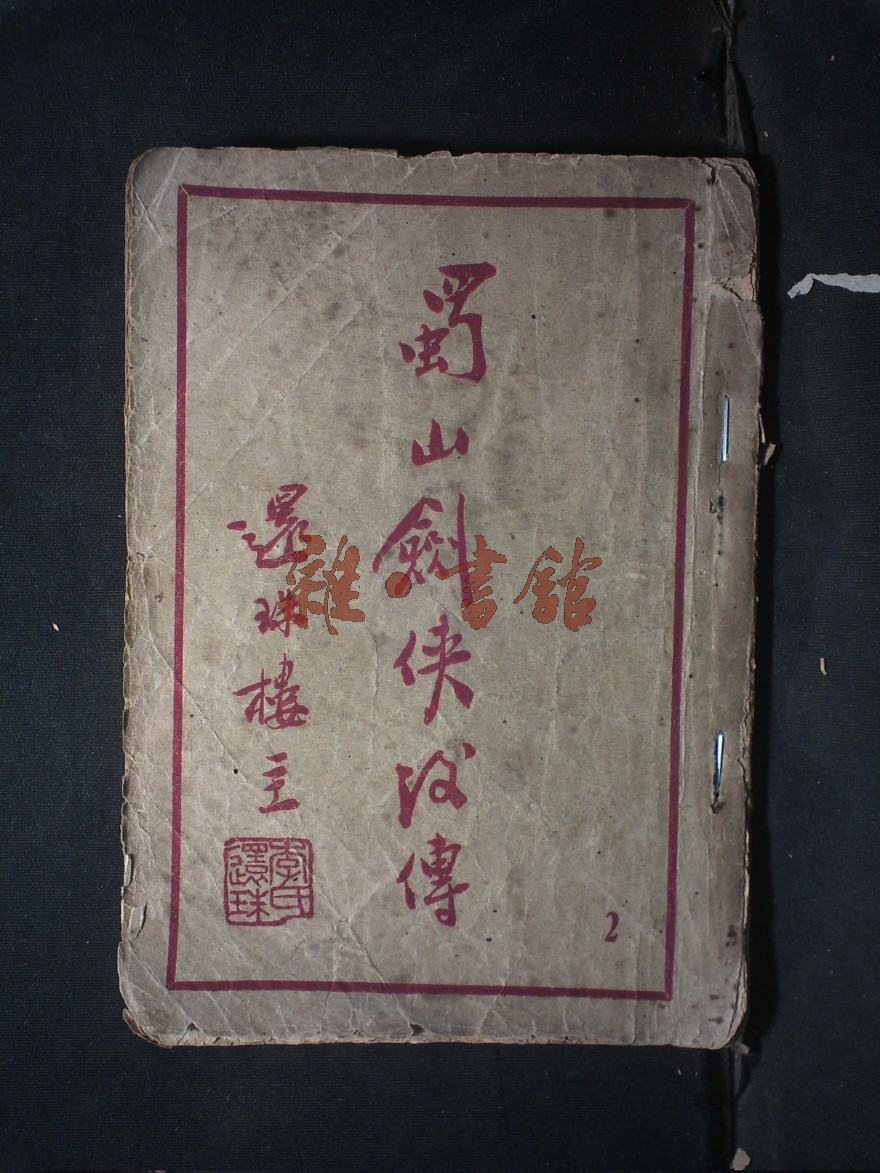 蜀山劍俠後傳
還珠樓主
李氏還珠
2
雜·書館